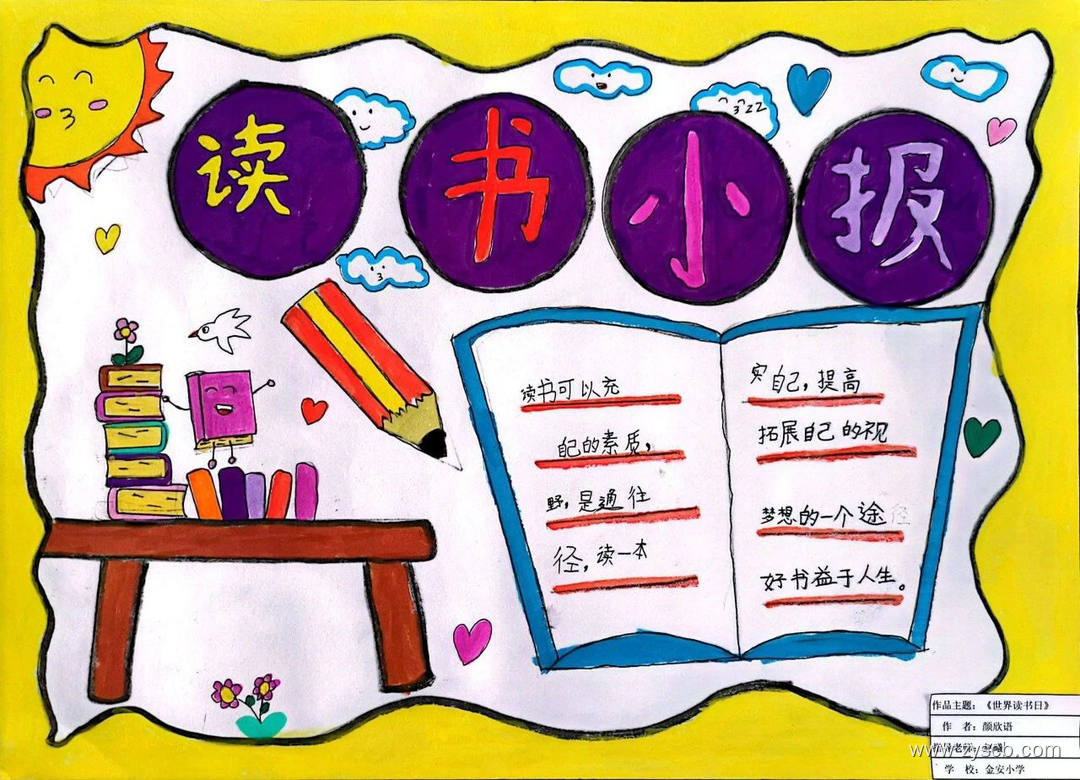 读书小报
读书可以充
实自己，提高
自己的素质，
拓展自己的视
野，是通往
梦想的一个途
径，读一本
好书益于人生。
作品主题：《世界读书日》
作 者：颜欣语
指导老师：
学 校：金安小学
www.zyscb.com